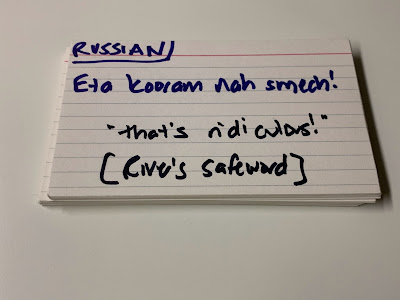 RUSSIAN/
Eta kooram nah smech!
"that's ridiculous!"
[Rive's safeword]